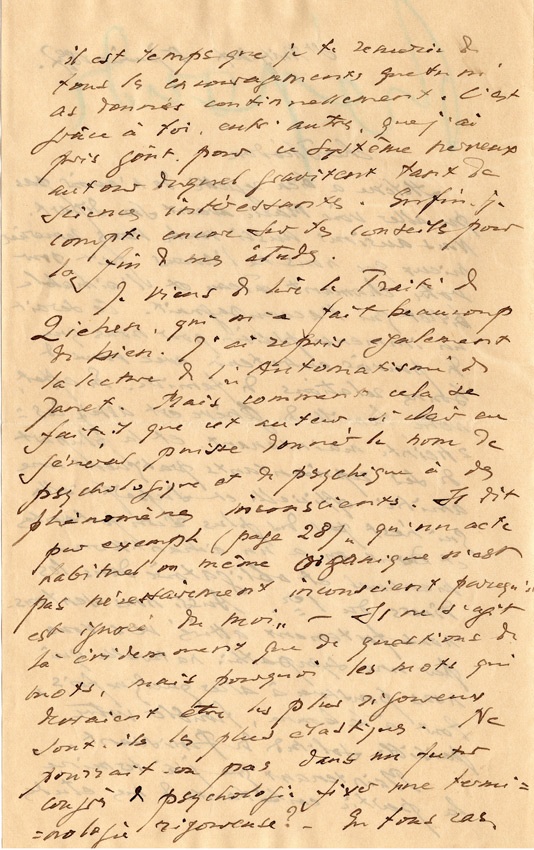 il est temps que je te remercie de
tous les encouragements que tu m'
as donnés continuellement. C'est
grâce à toi, entre autres, que j'ai
pris goût pour ce système nerveux
autour duquel gravitent tant de
sciences intéressantes. Enfin, je
compte encore sur tes conseils pour
la fin de mes études.
Je viens de lire le Traité de
Ziehen, qui m'a fait beaucoup
de bien. J'ai repris également
la lecture de l'"Automatisme" de
Janet. Mais comment cela se
fait-il que cet auteur si clair en
général puisse donner le nom de
psychologique et de psychique à des
phénomènes inconscients. Il dit
par exemple (page 28) „ qu'un acte
habituel ou même organique n'est
pas nécessairement inconscient parcequ'il
est ignoré du moi „ — Il ne s'agit
là évidemment que de questions de
mots, mais pourquoi les mots qui
devraient être les plus rigoureux
sont-ils les plus élastiques. Ne
pourrait-on pas dans un futur
congrès de psychologie fixer une termi=
=nologie rigoureuse? – En tous cas,